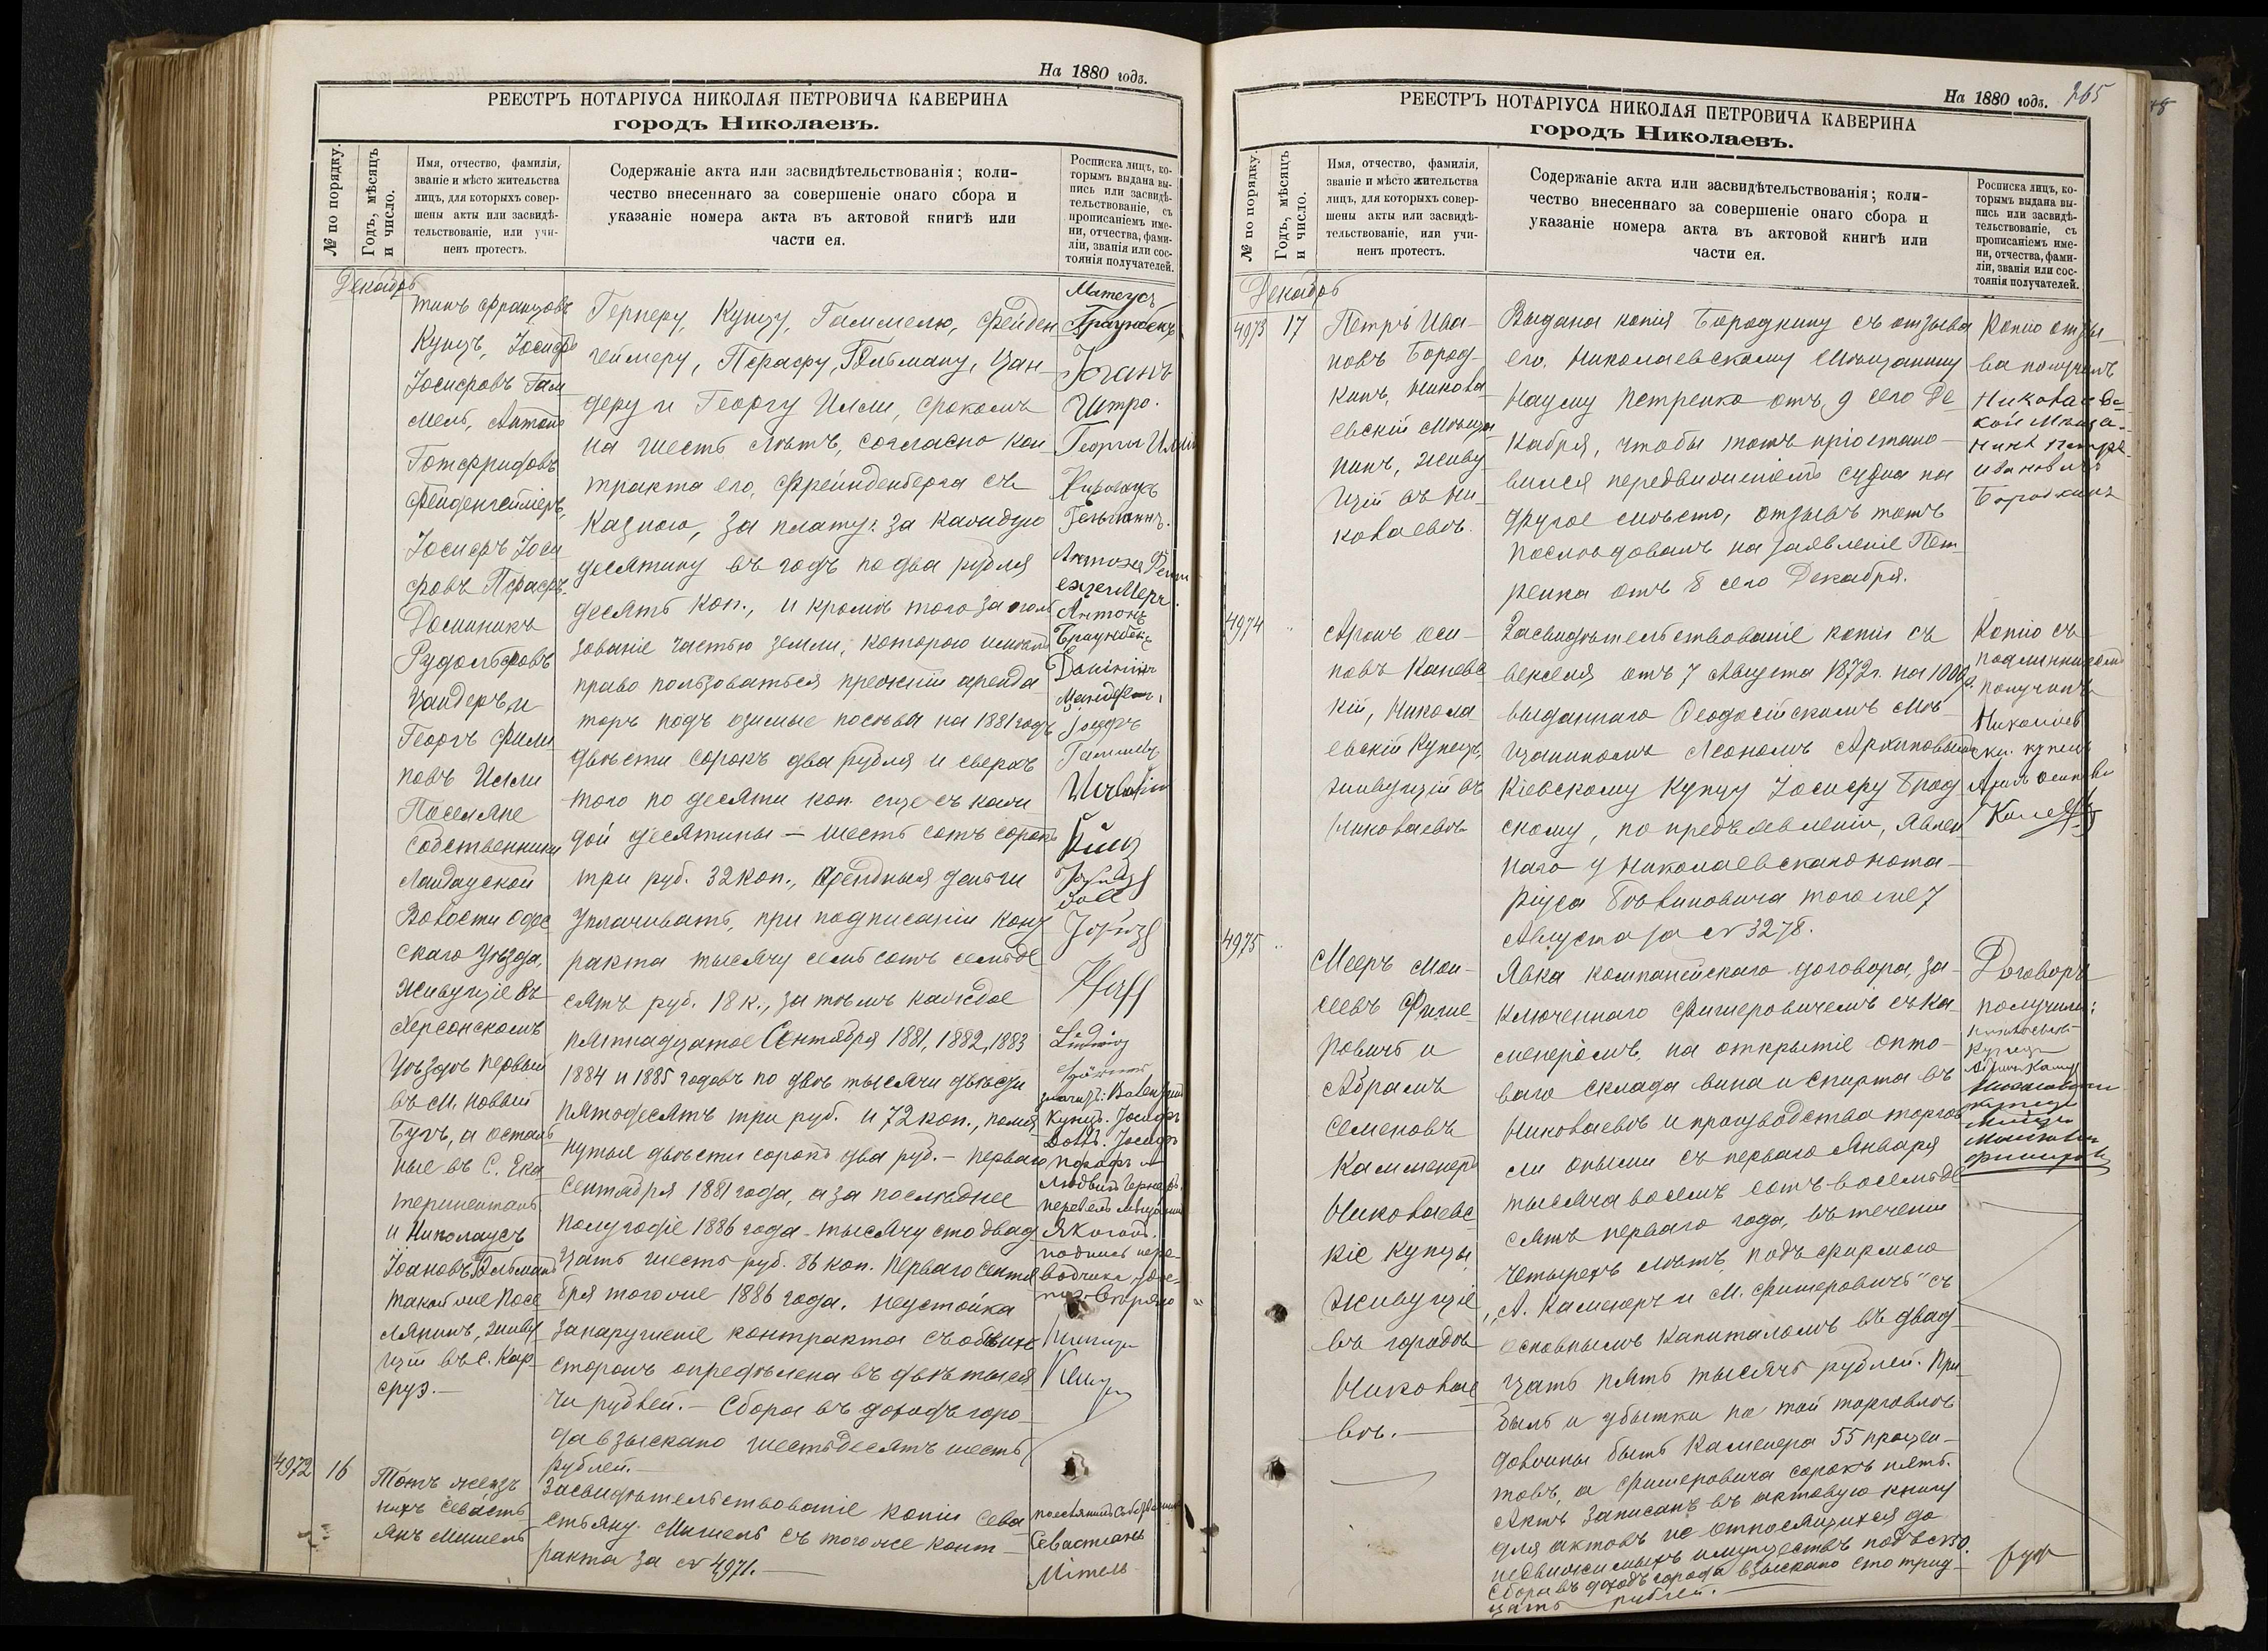 На 1880 годъ.
РЕЕСТРЪ НОТАРІУСА НИКОЛАЯ ПЕТРОВИЧА КАВЕРИНА
городъ Николаевъ.
№ по порядку.
Годъ, мѣсяцъ
и число.
Имя, отчество, фамилія,
званіе и мѣсто жительства
лицъ, для которыхъ совер-
шены акты или засвидѣ-
тельствованіе, или учи-
ненъ протестъ.
Содержаніе акта или засвидѣтельствованія; коли-
чество внесеннаго за совершеніе онаго сбора и
указаніе номера акта въ актовой книгѣ или
части ея.
Росписка лицъ, ко-
торымъ выдана вы-
пись или засвидѣ-
тельствованіе, съ
прописаніемъ име-
ни, отчества, фами-
ліи, званія или сос-
тоянія получателей.
Декабрь
тинъ Францовъ
Кунцъ, Іосифъ
Іосифовъ Гам
мель, Антонъ
Готфридовъ
Фейденгеймеръ,
Іосифъ Іоси
фовъ Пфафъ
Доминикъ
Рудольфовъ
Цандеръ и
Георгъ Фили
повъ Илли
Поселяне
собственники
Ландауской
Волости Одес
скаго уѣзда,
живущіе въ
Херсонскомъ
уѣздѣ первый
въ М. Новый
Бугъ, а осталь
ные въ С. Ека
териненталь
и Николаусъ
Іоановъ Гельманъ
такой же посе
лянинъ, живу
щій въ С. Кар
сруэ.—
Гернеру, Кунцу, Гаммелю, Фейден
геймеру, Пфафу, Гельману, Цан
деру и Георгу Илли, срокомъ
на шесть лѣтъ, согласно кон
тракта его, Фрейнденберга съ
казною, за плату: за каждую
десятину въ годъ по два рубля
десять коп., и кромѣ того за поль
зованіе частью земли, которою имѣетъ
право пользоваться прежній аренда
торъ подъ озимые посѣвы на 1881 годъ
двѣсти сорокъ два рубля и сверхъ
того по десяти коп. еще съ каж
дой десятины — шесть сотъ сорокъ
три руб. 32 коп., арендныя деньги
уплачивать, при подписаніи конт
ракта тысячу семьсотъ семьде
сятъ руб. 18 к., за тѣмъ каждое
пятнадцатое Сентября 1881, 1882, 1883
1884 и 1885 годовъ по двѣ тысячи двѣсти
пятьдесятъ три руб. и 72 коп., помя
нутые двѣсти сорокъ два руб. — перваго
сентября 1881 года, а за послѣднее
полугодіе 1886 года — тысячу сто двад
цать шесть руб. 86 коп. перваго Сентя
бря того же 1886 года. Неустойка
за нарушеніе контракта съ обѣихъ
сторонъ опредѣлена въ двѣ тыся
чи рублей.— Сбора въ доходъ горо
да взыскано шестьдесятъ шесть
рублей.—
Матеусъ
Браунбекъ
Іоганъ
Штро.
Георгъ Илли
Николаусъ
Гельманнъ.
Антонъ
Браунбекъ
Доминикъ
Іозефъ
Pfaff
Ludwig
Кунцъ. Іосифъ
4972
16
Тотъ же изъ
нихъ Севасть
янъ Мишель
Засвидѣтельствованіе копіи Сева
стьяну Мишель съ того же конт
ракта за № 4971.—
Севастіанъ
Мітель
На 1880 годъ.
265
РЕЕСТРЪ НОТАРІУСА НИКОЛАЯ ПЕТРОВИЧА КАВЕРИНА
городъ Николаевъ.
№ по порядку.
Годъ, мѣсяцъ
и число.
Имя, отчество, фамилія,
званіе и мѣсто жительства
лицъ, для которыхъ совер-
шены акты или засвидѣ-
тельствованіе, или учи-
ненъ протестъ.
Содержаніе акта или засвидѣтельствованія; коли-
чество внесеннаго за совершеніе онаго сбора и
указаніе номера акта въ актовой книгѣ или
части ея.
Росписка лицъ, ко-
торымъ выдана вы-
пись или засвидѣ-
тельствованіе, съ
прописаніемъ име-
ни, отчества, фами-
ліи, званія или сос-
тоянія получателей.
Декабрь
4973
17
Петръ Ива-
новъ Бород-
кинъ, Никола
евскій мѣща
нинъ, живу
щій въ Ни
колаевѣ.
Выдана копія Бородкину съ отзыва
его, Николаевскому мѣщанину
Науму Петренко отъ 9 сего Де
кабря, чтобы тотъ пріостано-
вился передвиженіемъ судна на
другое мѣсто, отзывъ тотъ
послѣдовалъ на заявленіе Пет
ренка отъ 8 сего Декабря.
Копію отзы-
ва получилъ
Николаевс
кой мѣща-
нинъ Петръ
Ивановичъ
Бородкинъ
4974
Аронъ Оси-
повъ Каневс
кій, Никола
евскій купецъ,
живущій въ
Николаевѣ
Засвидѣтельствованіе копіи съ
векселя отъ 7 Августа 1872 г. на 1000 р.
выданнаго Ѳеодосійскимъ мѣ
щаниномъ Леономъ Архиповымъ
Кіевскому купцу Іосифу Брод
скому, по предъявленію, явлен
наго у Николаевскаго нота-
ріуса Бѣлиновича того же 7
Августа за № 3278.
Копію съ
подлинникомъ
получилъ
Николаев
ск. купецъ
Аронъ Осиповъ
4975
Мееръ Мои-
сеевъ Фише
ровичъ и
Абрамъ
Семеновъ
Каменеръ
Николаевс
кіе купцы,
живущіе
въ городѣ
Николае
вѣ.—
Явка компанейскаго договора, за-
ключеннаго Фишеровичемъ съ Ка-
менеромъ, на открытіе опто-
ваго склада вина и спирта въ
Николаевѣ и производства торгов
ли оными съ перваго Января
тысяча восемь сотъ восемьде
сятъ перваго года, въ теченіи
четырехъ лѣтъ, подъ фирмою
„А. Каменеръ и М. Фишеровичъ" съ
основнымъ капиталомъ въ двад
цать пять тысячъ рублей. При
быль и убытки по той торговлѣ
должны быть Каменера 55 процен-
товъ, а Фишеровича сорокъ пять.
Актъ записанъ въ актовую книгу
для актовъ не относящихся до
недвижимыхъ имуществъ подъ
Сбора въ доходъ города взыскано сто трид
цать рублей.—
Договоръ
получили: